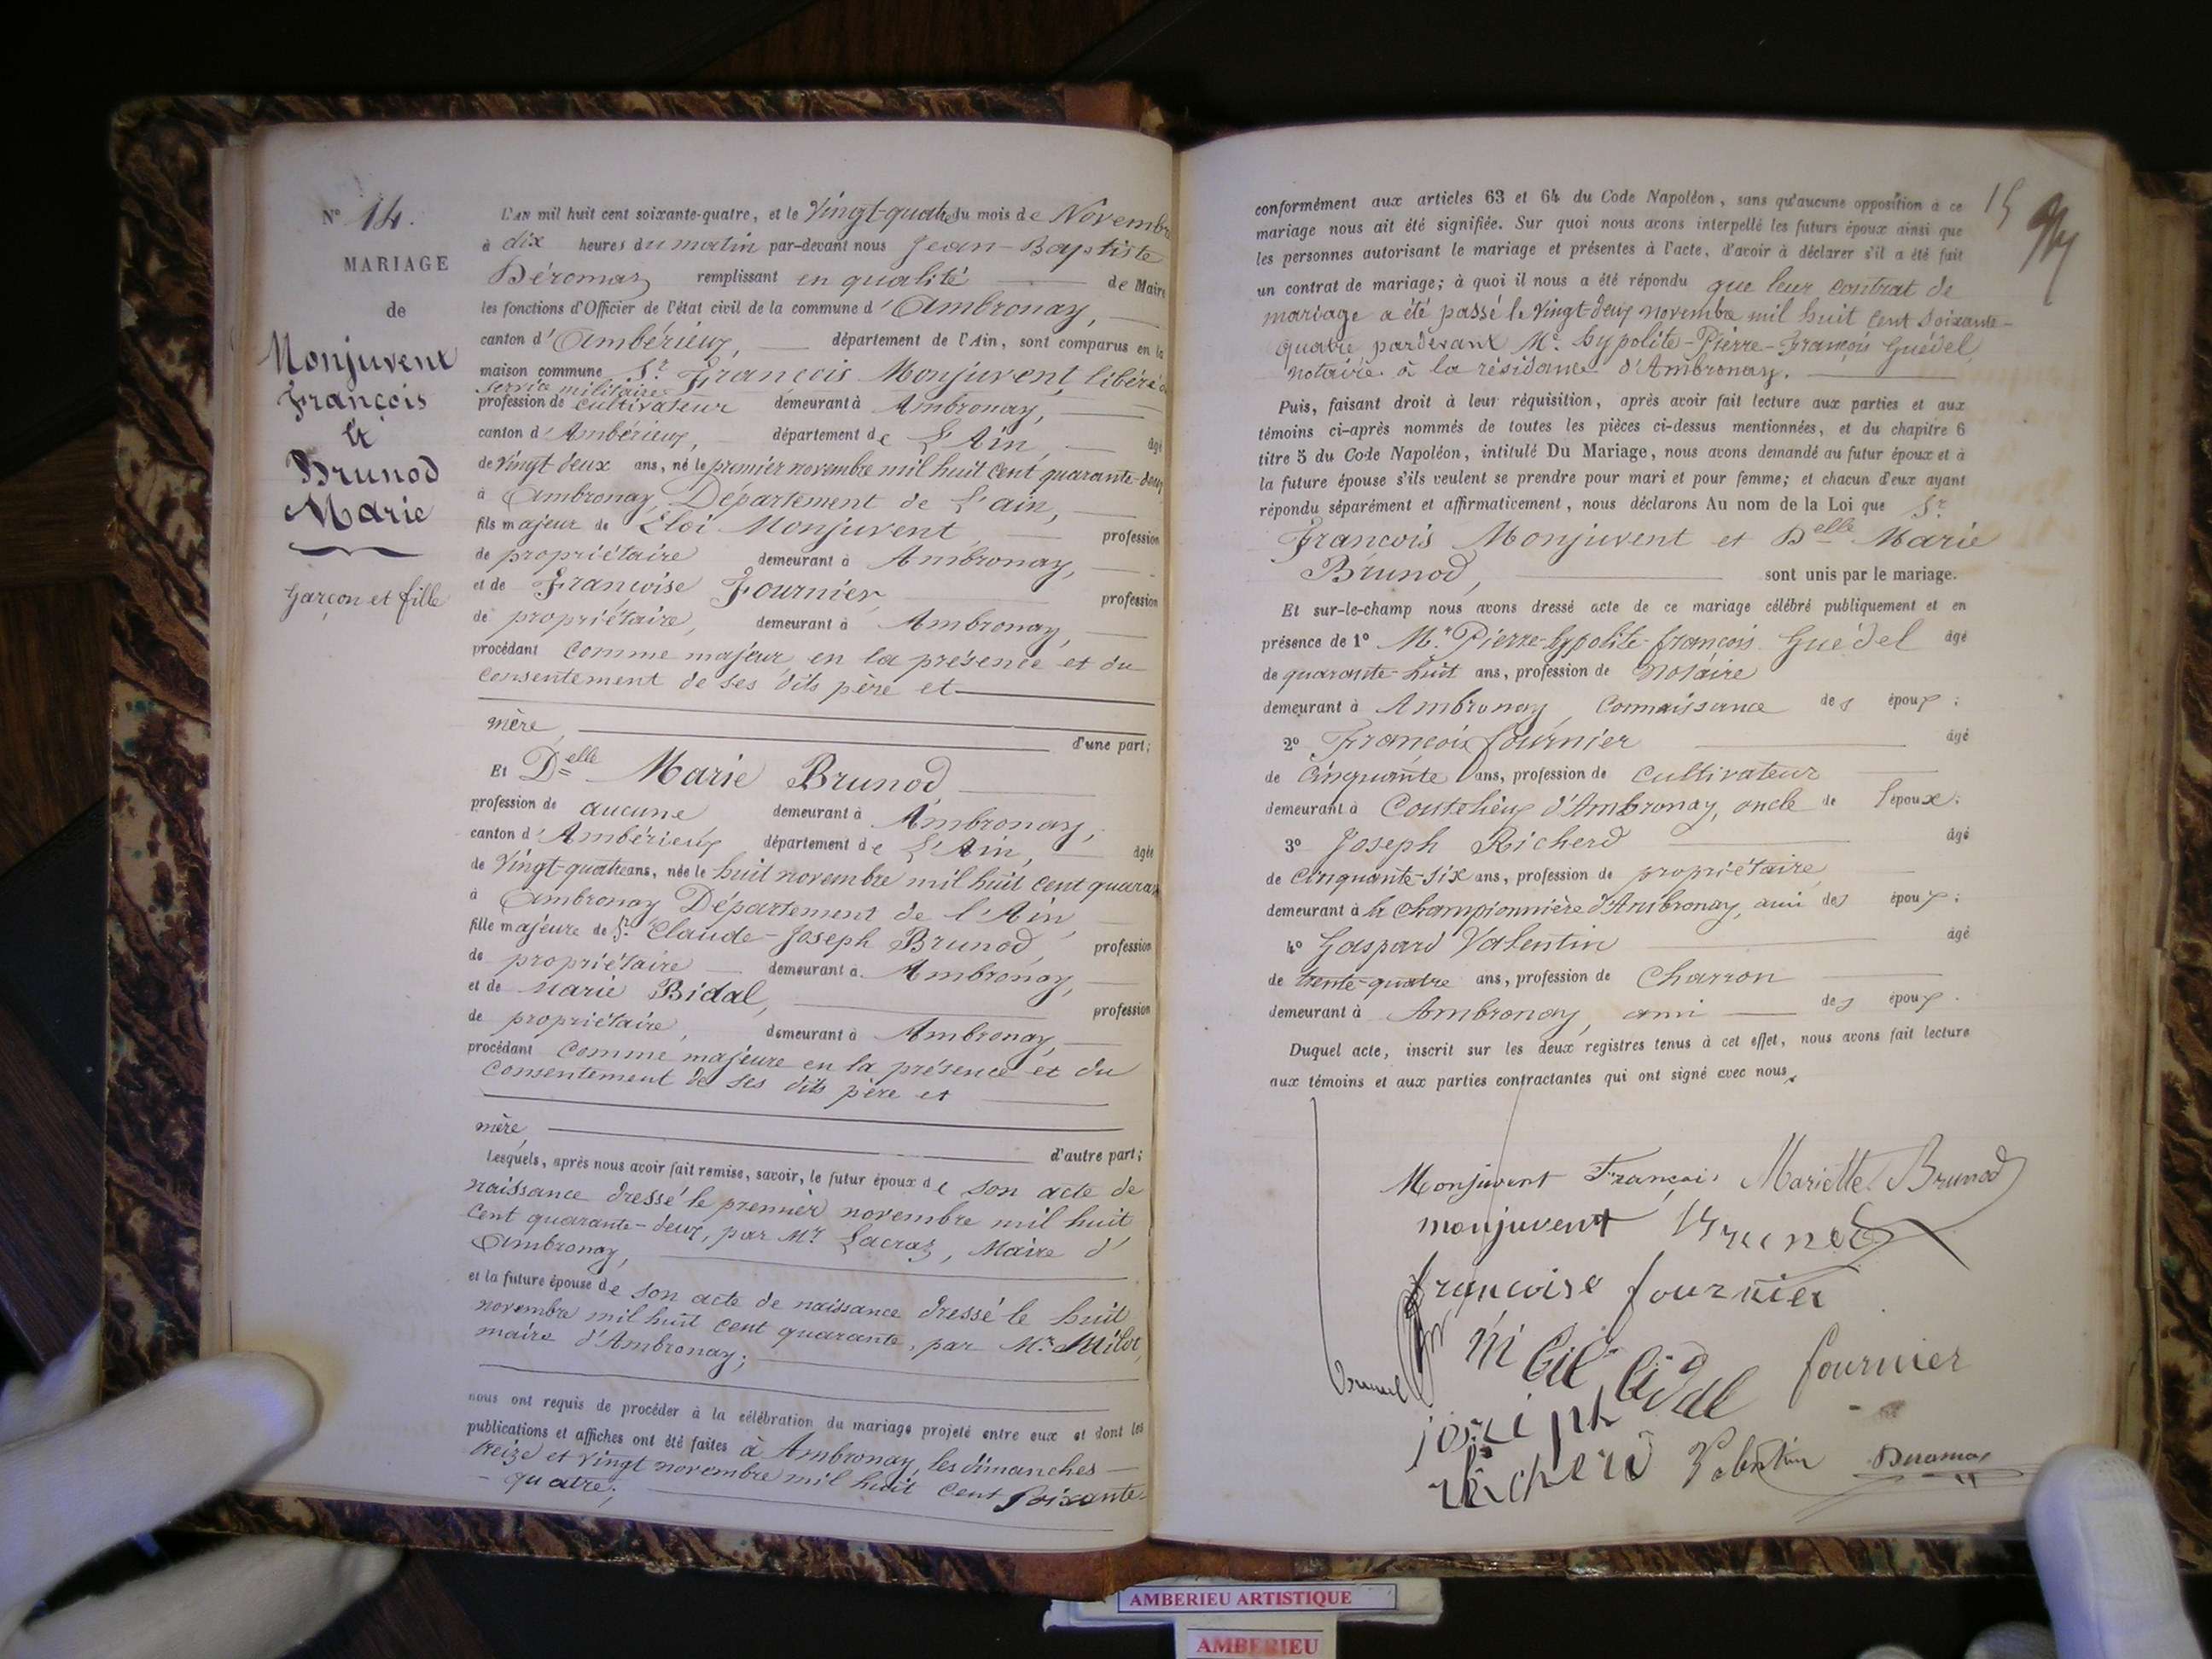 N° 14.
MARIAGE
de
Monjuvent
François
et
Brunod
Marie
Garçon et fille
L'AN mil huit cent soixante-quatre, et le Vingt-quatre du mois de Novembre
à dix heures du matin par-devant nous Jean-Baptiste
Déromas remplissant en qualité de Maire
les fonctions d'Officier de l'état civil de la commune d'Ambronay,
canton d'Ambérieux, département de l'Ain, sont comparus en la
maison commune Sr. François Monjuvent, libéré du
service militaire
profession de cultivateur demeurant à Ambronay,
canton d'Ambérieux, département de L'Ain, âgé
de vingt deux ans, né le premier novembre mil huit cent quarante-deux
à Ambronay, Département de L'ain,
fils majeur de Eloi Monjuvent profession
de propriétaire demeurant à Ambronay,
et de Françoise Fournier, profession
de propriétaire, demeurant à Ambronay,
procédant comme majeur, en la présence et du
consentement de ses dits père et
mère, d'une part;
Et Delle Marie Brunod,
profession de aucune demeurant à Ambronay,
canton d'Ambérieux, département de L'Ain, âgée
de vingt-quatre ans, née le huit novembre mil huit cent quarante
à Ambronay Département de l'Ain,
fille majeure de Sr. Claude-Joseph Brunod, profession
de propriétaire demeurant à Ambronay,
et de Marie Bidal, profession
de propriétaire, demeurant à Ambronay,
procédant comme majeure en la présence et du
consentement de ses dits père et
mère, d'autre part;
Lesquels, après nous avoir fait remise, savoir, le futur époux de son acte de
naissance dressé le premier novembre mil huit
cent quarante-deux, par Mr Lacraz, Maire d'
Ambronay,
et la future épouse de son acte de naissance dressé le huit
novembre mil huit cent quarante, par Mr. Milot,
maire d'Ambronay;
nous ont requis de procéder à la célébration du mariage projeté entre eux et dont les
publications et affiches ont été faites à Ambronay, les dimanches
treize et vingt novembre mil huit cent soixante-
-quatre;
15
conformément aux articles 63 et 64 du Code Napoléon, sans qu'aucune opposition à ce
mariage nous ait été signifiée. Sur quoi nous avons interpellé les futurs époux ainsi que
les personnes autorisant le mariage et présentes à l'acte, d'avoir à déclarer s'il a été fait
un contrat de mariage; à quoi il nous a été répondu que leur contrat de
mariage a été passé le vingt-deux novembre mil huit cent soixante-
quatre pardevant Me. hypolite-Pierre-François Guédel,
notaire à la résidance d'Ambronay.
Puis, faisant droit à leur réquisition, après avoir fait lecture aux parties et aux
témoins ci-après nommés de toutes les pièces ci-dessus mentionnées, et du chapitre 6
titre 5 du Code Napoléon, intitulé Du Mariage, nous avons demandé au futur époux et à
la future épouse s'ils veulent se prendre pour mari et pour femme; et chacun d'eux ayant
répondu séparément et affirmativement, nous déclarons Au nom de la Loi que Sr.
François Monjuvent et Delle Marie
Brunod, sont unis par le mariage.
Et sur-le-champ nous avons dressé acte de ce mariage célébré publiquement et en
présence de 1° Mr. Pierre-hypolite-françois Guédel âgé
de quarante-huit ans, profession de notaire
demeurant à Ambronay, connaissance des époux;
2° François fournier âgé
de cinquante ans, profession de cultivateur
demeurant à Coutelieux d'Ambronay, oncle de l'époux;
3° Joseph Richerd âgé
de cinquante-six ans, profession de propriétaire,
demeurant à la championnière d'Ambronay, ami des époux;
4° Gaspard Valentin âgé
de trente-quatre ans, profession de charron
demeurant à Ambronay, ami des époux.
Duquel acte, inscrit sur les deux registres tenus à cet effet, nous avons fait lecture
aux témoins et aux parties contractantes qui ont signé avec nous.
Monjuvent François Mariette Brunod
monjuvent Brunod
françoise fournier
bidal fournier
joseph
richerd Valentin Deromas
AMBERIEU ARTISTIQUE
AMBERIEU